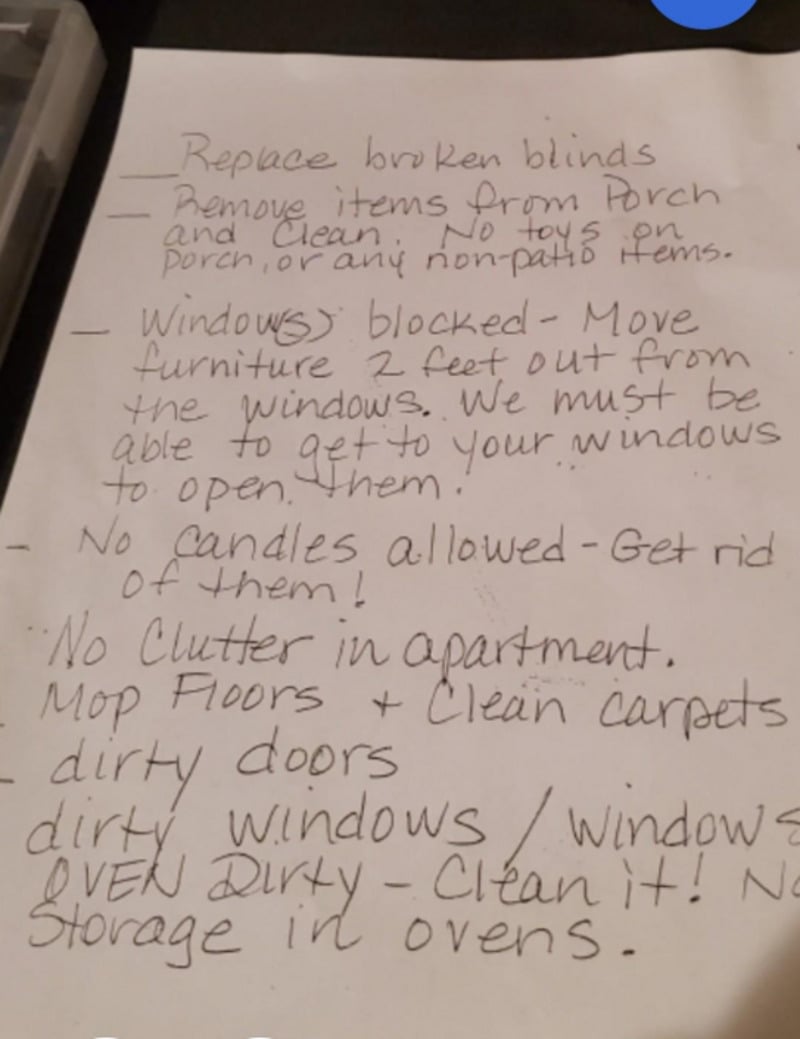 __ Replace broken blinds
__ Remove items from Porch
and Clean. No toys on
porch, or any non-patio items.
__ Window(s) blocked - Move
furniture 2 feet out from
the windows. We must be
able to get to your windows
to open them!
- No candles allowed - Get rid
of them!
No Clutter in apartment.
Mop Floors + Clean carpets
- dirty doors
dirty windows / Windows
OVEN Dirty - Clean it! No
Storage in ovens.